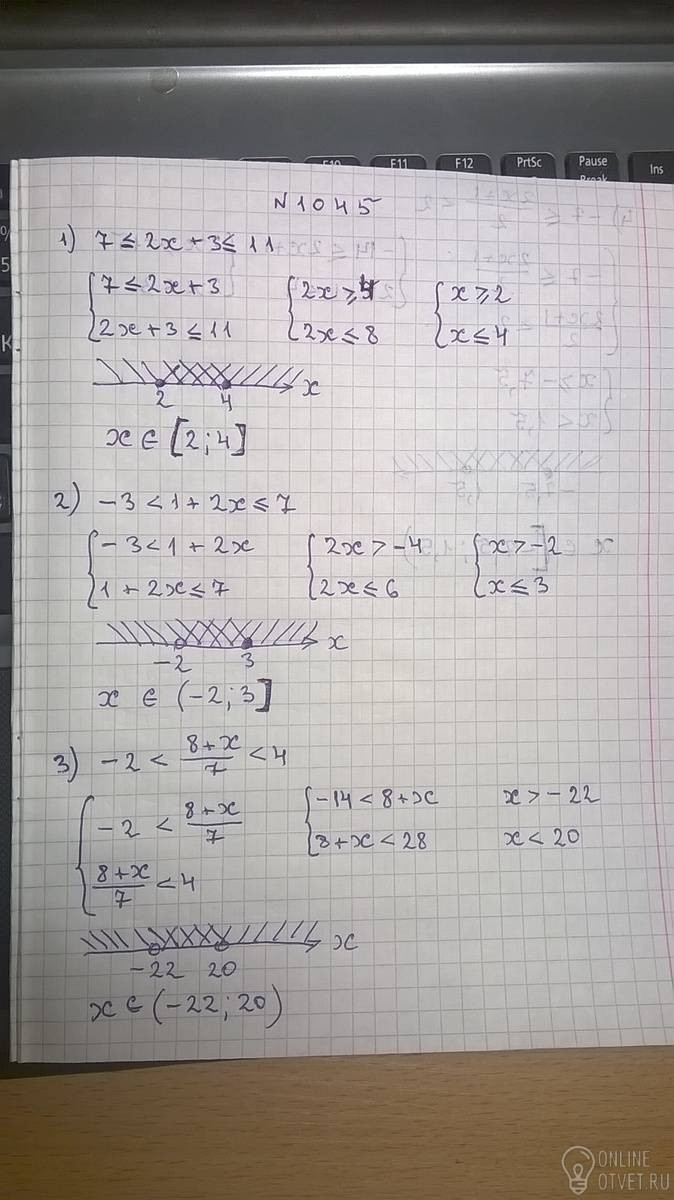 F10 F11 F12 PrtSc Pause Break Ins
N 1045
1) 7 ≤ 2x + 3 ≤ 11
{ 7 ≤ 2x + 3 { 2x ≥ 4 { x ≥ 2
{ 2x + 3 ≤ 11 { 2x ≤ 8 { x ≤ 4
2 4 x
x ∈ [2; 4]
2) -3 < 1 + 2x ≤ 7
{ -3 < 1 + 2x { 2x > -4 { x > -2
{ 1 + 2x ≤ 7 { 2x ≤ 6 { x ≤ 3
-2 3 x
x ∈ (-2; 3]
3) -2 < (8+x)/7 < 4
{ -2 < (8+x)/7 { -14 < 8+x x > -22
{ (8+x)/7 < 4 { 8+x < 28 x < 20
-22 20 x
x ∈ (-22; 20)
ONLINE
OTVET.RU